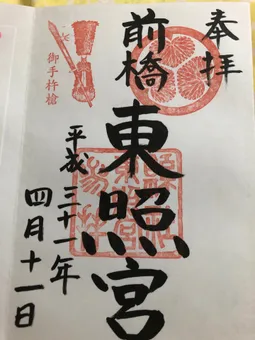 奉拝
前橋東照宮
御手杵槍
平成三十一年
四月十一日